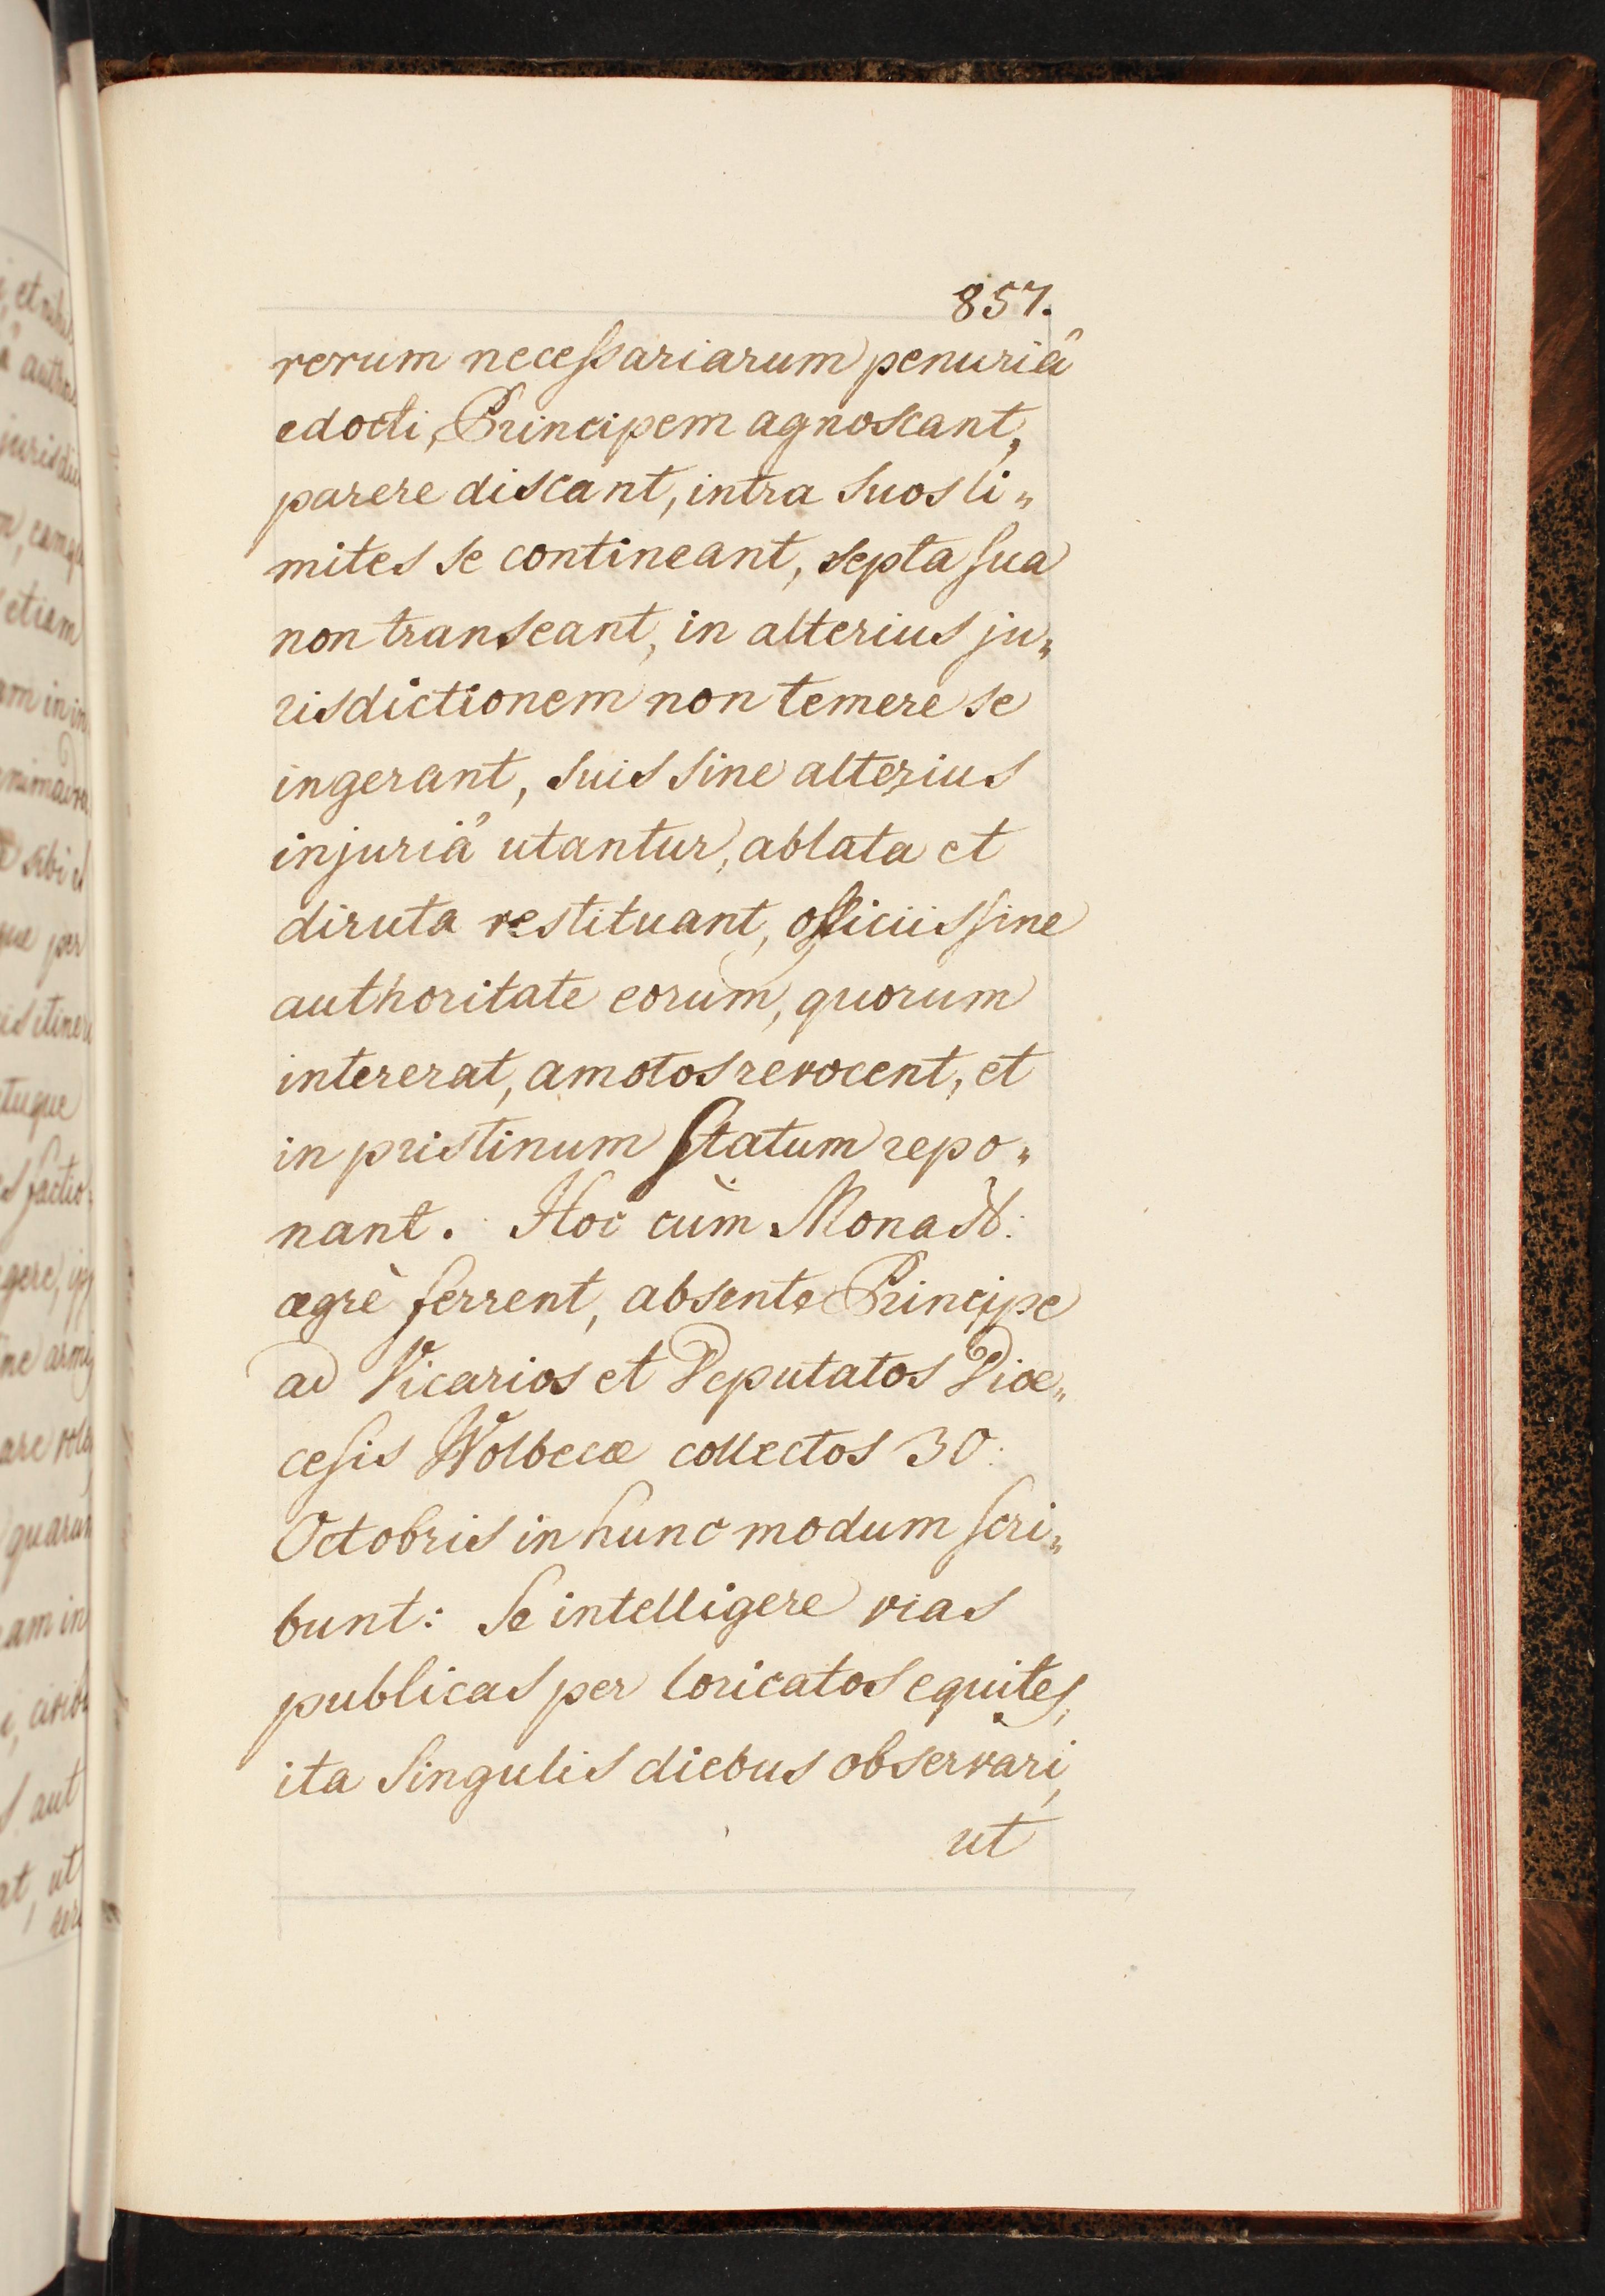 857.
rerum necessariarum penuriâ
edocti, Principem agnoscant,
parere discant, intra suos li„
mites se contineant, septa sua
non transeant, in alterius ju„
risdictionem non temere se
ingerant, suis sine alterius
injuriâ utantur, ablata et
diruta restituant, officiis sine
authoritate eorum, quorum
intererat, amotos revocent, et
in pristinum statum repo„
nant. Hoc cùm Monast:
ægrè ferrent, absente Principe
ad Vicarios et Deputatos Dioe„
cesis Wolbecæ collectos 30.
Octobris in hunc modum scri„
bunt: Se intelligere vias
publicas per loricatos equites,
ita singulis diebus observari,
ut